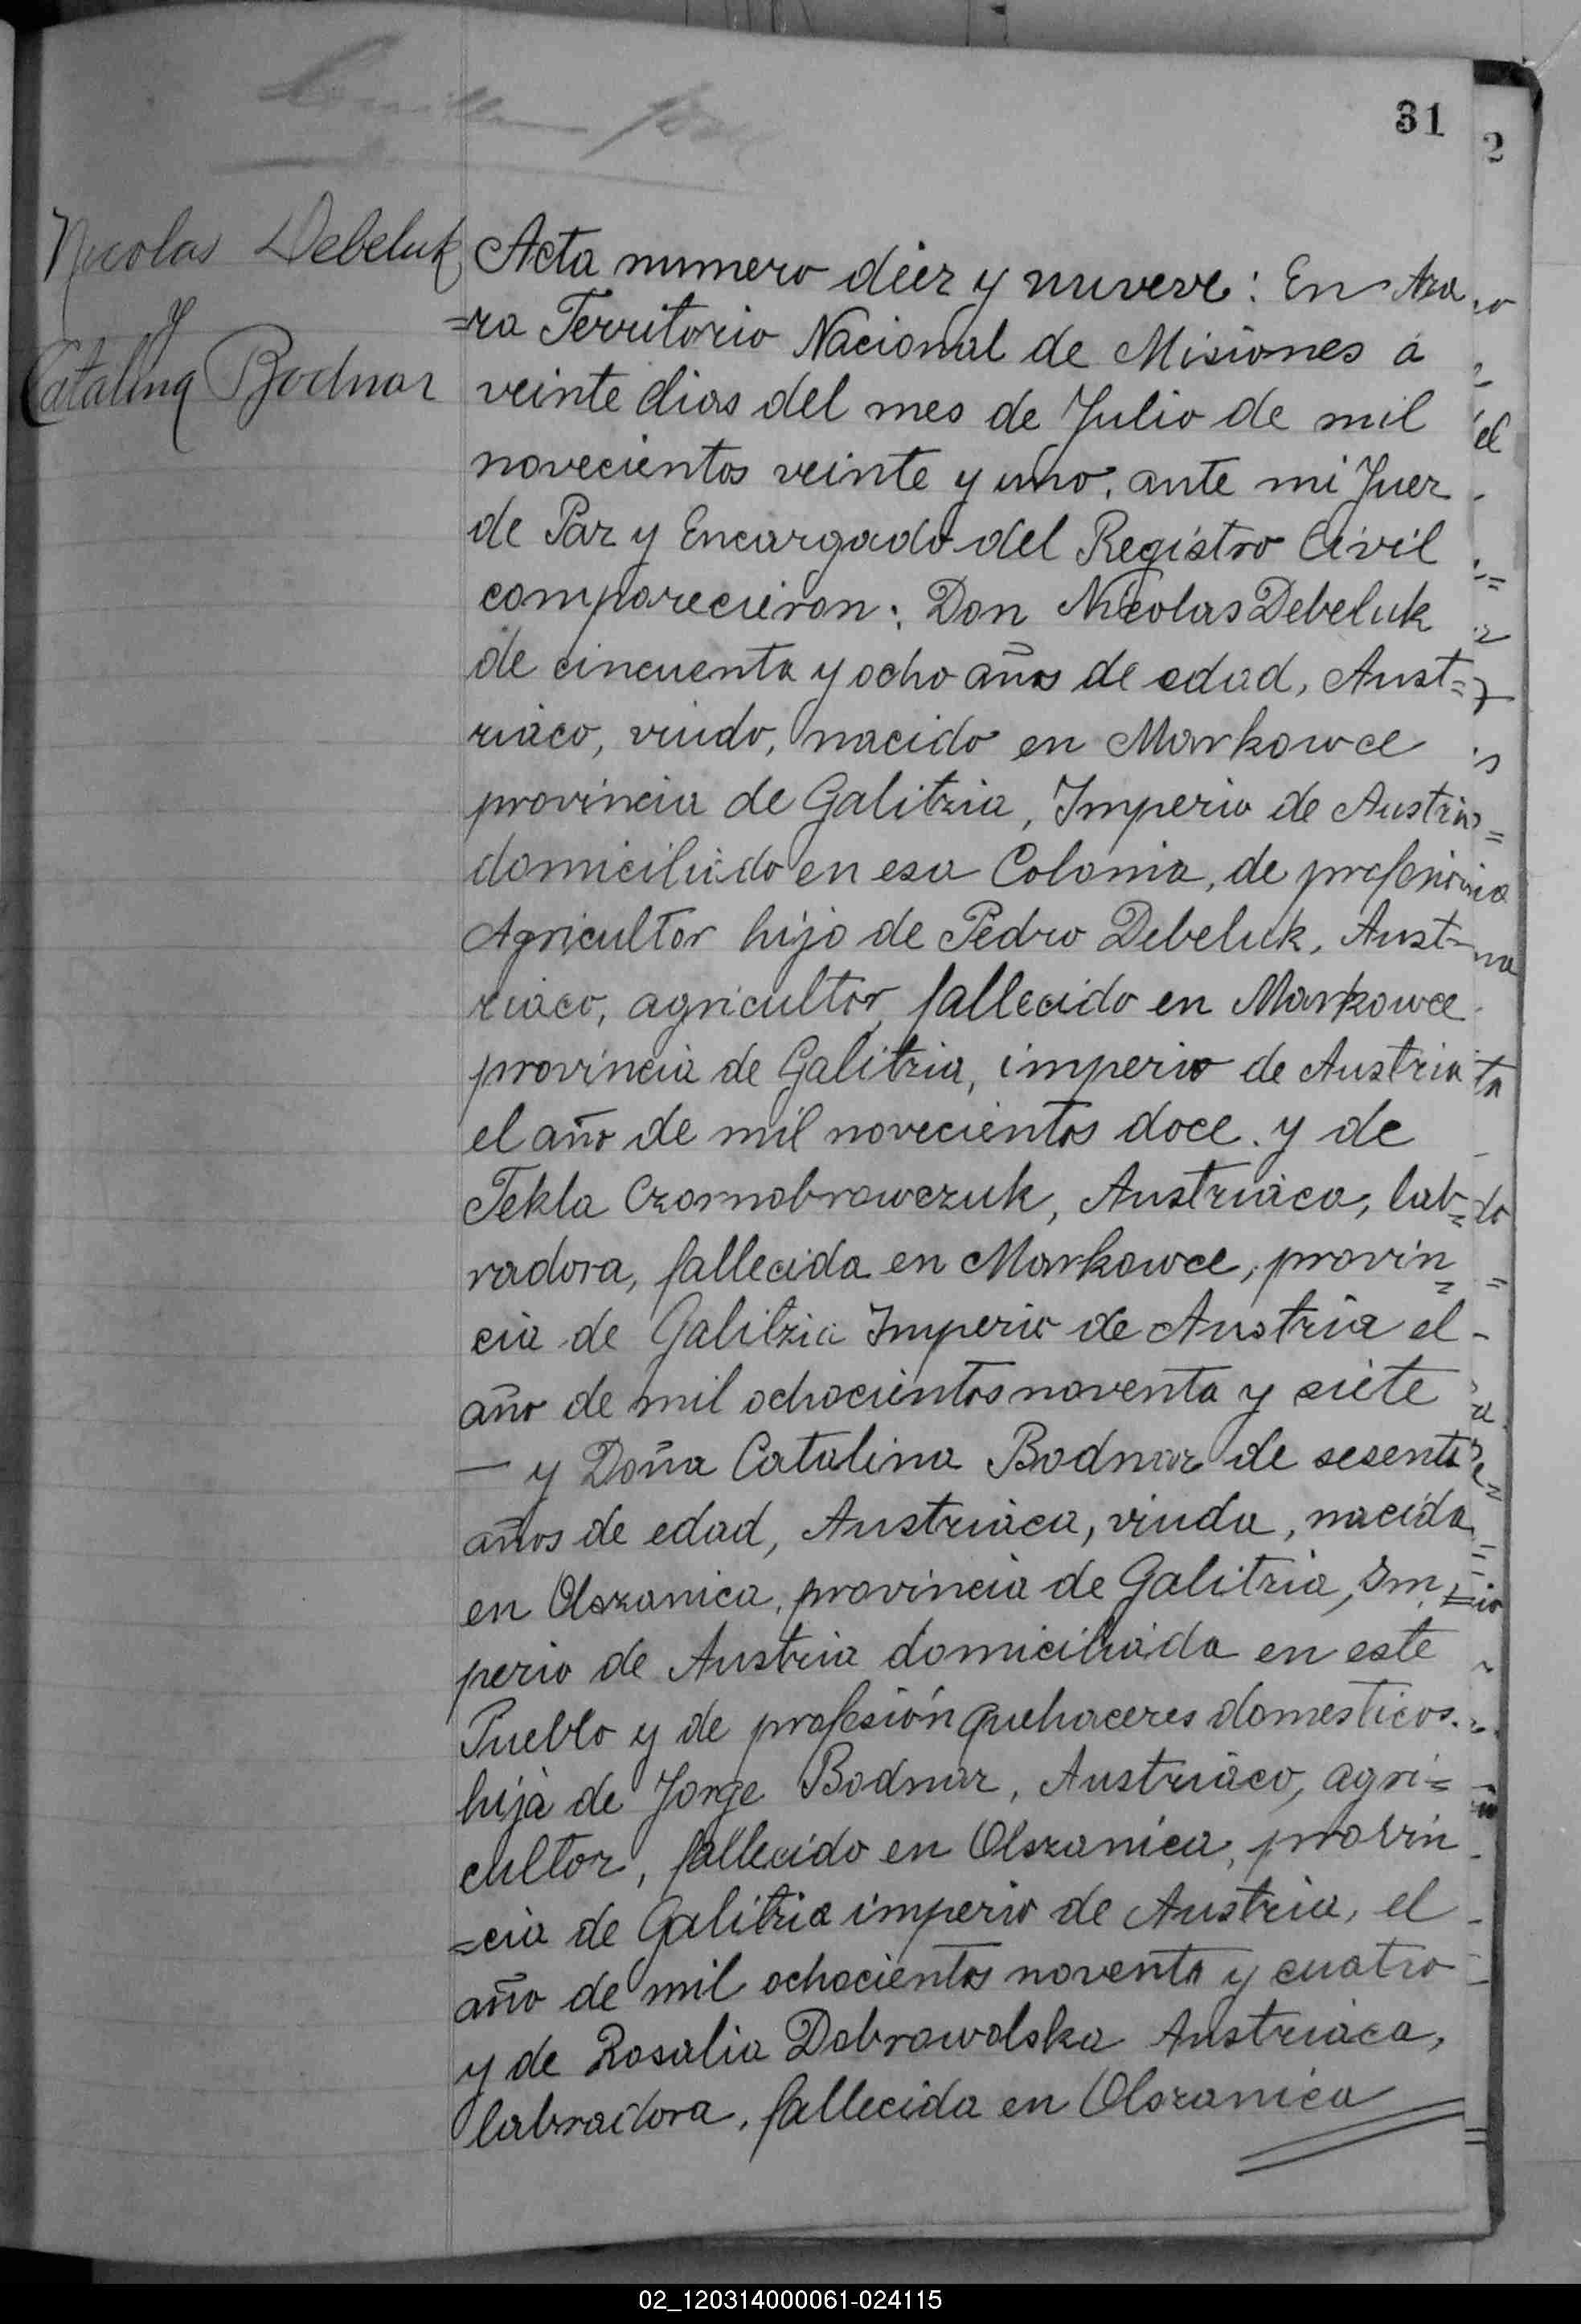 31
2
Nicolas Debeluk
y
Catalina Bodnar
Acta numero diez y nuveve: En Aza
=ra Territorio Nacional de Misiones á
veinte dias del mes de Julio de mil
novecientos veinte y uno, ante mi Juez
de Paz y Encargado del Registro Civil
comparecieron: Don Nicolas Debeluk
de cincuenta y ocho años de edad, Aust=
riaco, viudo, nacido en Markowce
provincia de Galitzia, Imperio de Austria
domiciliado en esa Colonia, de profesion
Agricultor hijo de Pedro Debeluk, Aust-
riaco, agricultor, fallecido en Markowce
provincia de Galitzia, imperio de Austria
el año de mil novecientos doce. y de
Tekla Czornobrowczuk, Austriaca, lab=
radora, fallecida en Markowce, provin=
cia de Galitzia Imperio de Austria el
año de mil ochocientos noventa y siete
— y Doña Catalina Bodnar de sesenta
años de edad, Austriaca, viuda, nacida
en Olszanica, provincia de Galitzia, Im=
perio de Austria domiciliada en este
Pueblo y de profesión quehaceres domesticos.
hija de Jorge Bodnar, Austriaco, agri=
cultor, fallecido en Olszanica, provin
=cia de Galitzia imperio de Austria, el
año de mil ochocientos noventa y cuatro
y de Rosalia Dobrowolska Austriaca,
labradora, fallecida en Olszanica
02_120314000061-024115